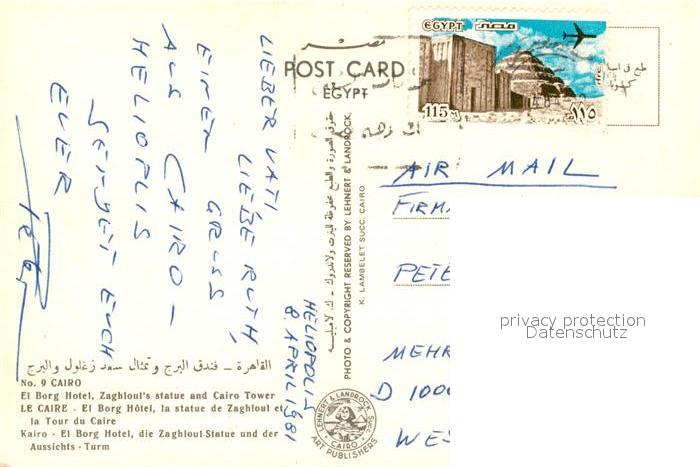 EGYPT مصر
115 M ١١٥
مصر
POST CARD
EGYPT
طبع فى
AIR MAIL
FIRM
PETE
MEHR
D 100
WES
privacy protection
Datenschutz
HELIOPOLIS
8. APRIL 1981
LIEBER VATI
LIEBE RUTH,
EINEN GRUSS
AUS CAIRO -
HELIOPLIS
SENDET EUCH
EUER
حقوق الصورة والطبع محفوظة للينرت ولاندروك - ك. لامبليه
PHOTO & COPYRIGHT RESERVED BY LEHNERT & LANDROCK
K. LAMBELET SUCC. CAIRO
القاهرة – فندق البرج وتمثال سعد زغلول والبرج
No. 9 CAIRO
El Borg Hotel, Zaghloul's statue and Cairo Tower
LE CAIRE - El Borg Hôtel, la statue de Zaghloul et
la Tour du Caire
Kairo - El Borg Hotel, die Zaghloul-Statue und der
Aussichts - Turm
LEHNERT & LANDROCK
SUCC.
CAIRO
ART PUBLISHERS